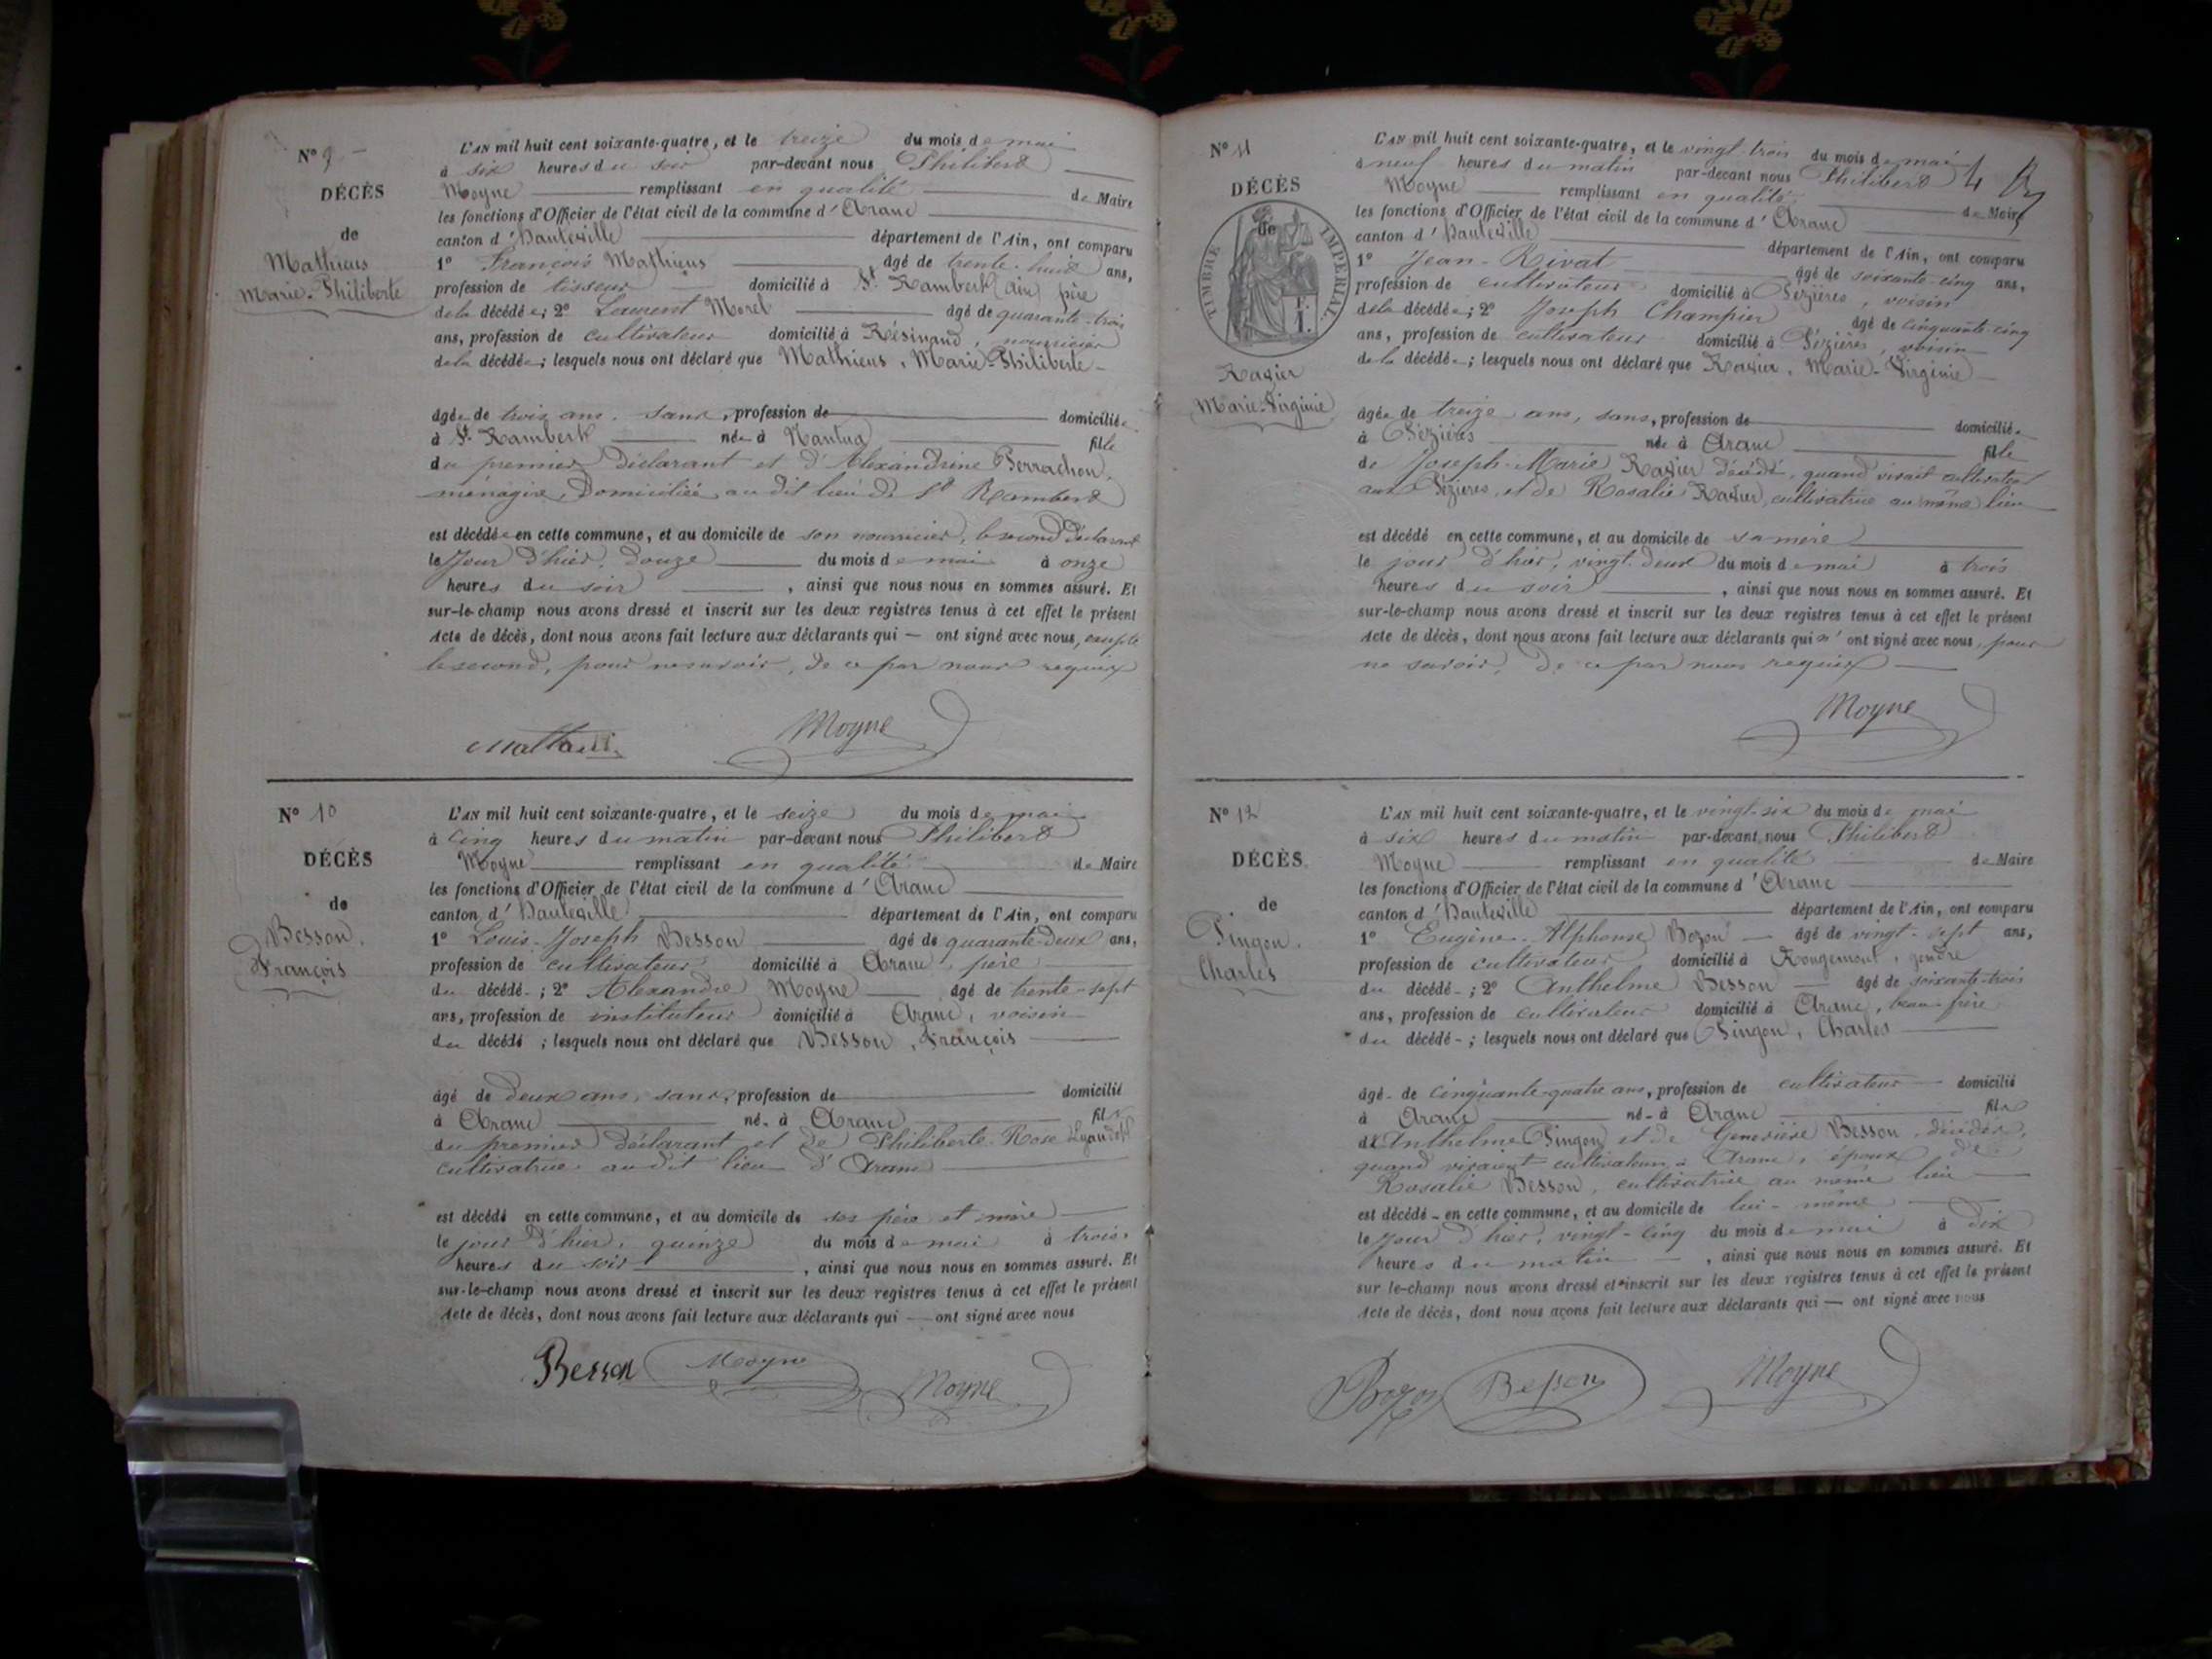 N° 9
DÉCÈS
de
Mathieus
Marie-Philiberte
L'AN mil huit cent soixante-quatre, et le treize du mois de mai
à six heures du soir par-devant nous Philibert
Moyne remplissant en qualité de Maire
les fonctions d'Officier de l'état civil de la commune d'Aranc
canton d'Hauteville département de l'Ain, ont comparu
1° François Mathieus âgé de trente-huit ans,
profession de tisseur domicilié à St Rambert (Ain) père
de la décédée; 2° Laurent Morel âgé de quarante-trois
ans, profession de cultivateur domicilié à Résinand, nourricier
de la décédée; lesquels nous ont déclaré que Mathieus, Marie-Philiberte
âgée de trois ans, sans, profession de domiciliée
à St Rambert née à Nantua fille
du premier déclarant et d'Alexandrine Perrachon,
ménagère, domiciliée au dit lieu de St Rambert
est décédée en cette commune, et au domicile de son nourricier, le second déclarant
le jour d'hier, douze du mois de mai à onze
heures du soir, ainsi que nous nous en sommes assuré. Et
sur-le-champ nous avons dressé et inscrit sur les deux registres tenus à cet effet le présent
Acte de décès, dont nous avons fait lecture aux déclarants qui — ont signé avec nous, excepté
le second, pour ne savoir, de ce par nous requis
Moyne
N° 10
DÉCÈS
de
Besson,
François
L'AN mil huit cent soixante-quatre, et le seize du mois de mai
à cinq heures du matin par-devant nous Philibert
Moyne remplissant en qualité de Maire
les fonctions d'Officier de l'état civil de la commune d'Aranc
canton d'Hauteville département de l'Ain, ont comparu
1° Louis-Joseph Besson âgé de quarante-deux ans,
profession de cultivateur domicilié à Aranc, père
du décédé; 2° Alexandre Moyne âgé de trente-sept
ans, profession de instituteur domicilié à Aranc, voisin
du décédé; lesquels nous ont déclaré que Besson, François
âgé de deux ans, sans, profession de domicilié
à Aranc né à Aranc fils
du premier déclarant et de Philiberte-Rose
cultivatrice audit lieu d'Aranc
est décédé en cette commune, et au domicile de ses père et mère
le jour d'hier, quinze du mois de mai à trois
heures du soir, ainsi que nous nous en sommes assuré. Et
sur-le-champ nous avons dressé et inscrit sur les deux registres tenus à cet effet le présent
Acte de décès, dont nous avons fait lecture aux déclarants qui — ont signé avec nous
Besson Moyne Moyne
N° 11
DÉCÈS
de
TIMBRE IMPÉRIAL
Ravier
Marie-Virginie
L'AN mil huit cent soixante-quatre, et le vingt-trois du mois de mai
à neuf heures du matin par-devant nous Philibert
Moyne remplissant en qualité de Maire
les fonctions d'Officier de l'état civil de la commune d'Aranc
canton d'Hauteville département de l'Ain, ont comparu
1° Jean-Rivat âgé de soixante-cinq ans,
profession de cultivateur domicilié à Pézières, voisin
de la décédée; 2° Joseph Champier âgé de cinquante-cinq
ans, profession de cultivateur domicilié à Pézières, voisin
de la décédée; lesquels nous ont déclaré que Ravier, Marie-Virginie
âgée de treize ans, sans, profession de domiciliée
à Pézières née à Aranc fille
de Joseph-Marie Ravier décédé, quand vivait cultivateur
aux Pézières, et de Rosalie Ravier, cultivatrice au même lieu
est décédé en cette commune, et au domicile de sa mère
le jour d'hier, vingt-deux du mois de mai à trois
heures du soir, ainsi que nous nous en sommes assuré. Et
sur-le-champ nous avons dressé et inscrit sur les deux registres tenus à cet effet le présent
Acte de décès, dont nous avons fait lecture aux déclarants qui n'ont signé avec nous, pour
ne savoir, de ce par nous requis
Moyne
N° 12
DÉCÈS
de
Pingon,
Charles
L'AN mil huit cent soixante-quatre, et le vingt-six du mois de mai
à six heures du matin par-devant nous Philibert
Moyne remplissant en qualité de Maire
les fonctions d'Officier de l'état civil de la commune d'Aranc
canton d'Hauteville département de l'Ain, ont comparu
1° Eugène-Alphonse Bozon âgé de vingt-sept ans,
profession de cultivateur domicilié à Rougemont, gendre
du décédé; 2° Anthelme Besson âgé de soixante-trois
ans, profession de cultivateur domicilié à Aranc, beau-frère
du décédé; lesquels nous ont déclaré que Pingon, Charles
âgé de cinquante-quatre ans, profession de cultivateur domicilié
à Aranc né à Aranc fils
de Anthelme Pingon et de Geneviève Besson, décédés,
quand vivaient cultivateurs à Aranc, époux de
Rosalie Besson, cultivatrice au même lieu
est décédé en cette commune, et au domicile de lui-même
le jour d'hier, vingt-cinq du mois de mai à dix
heures du matin, ainsi que nous nous en sommes assuré. Et
sur-le-champ nous avons dressé et inscrit sur les deux registres tenus à cet effet le présent
Acte de décès, dont nous avons fait lecture aux déclarants qui — ont signé avec nous
Bozon Besson Moyne